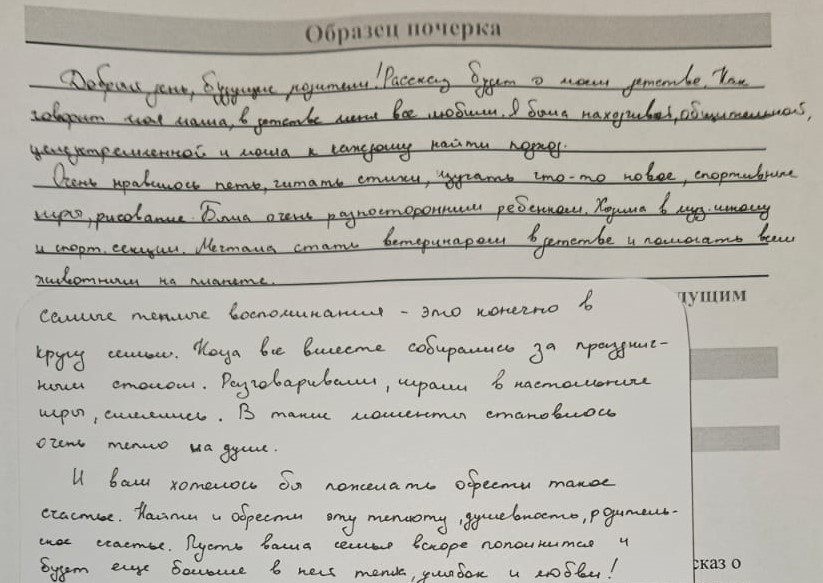 Образец почерка
Добрый день, будущие родители! Рассказ будет о моем детстве. Как
говорит моя мама, в детстве меня все любили. Я была находчивой, общительной,
целеустремленной и могла к каждому найти подход.
Очень нравилось петь, читать стихи, изучать что-то новое, спортивные
игры, рисование. Была очень разносторонним ребенком. Ходила в муз. школу
и спорт. секции. Мечтала стать ветеринаром в детстве и помогать всем
животным на планете.
дущим
Самые теплые воспоминания - это конечно в
кругу семьи. Когда все вместе собирались за празднич-
ным столом. Разговаривали, играли в настольные
игры, смеялись. В такие моменты становилось
очень тепло на душе.
И вам хотелось бы пожелать обрести такое
счастье. Найти и обрести эту теплоту, душевность, родитель-
ское счастье. Пусть ваша семья вскоре пополнится и
будет еще больше в ней тепла, улыбок и любви!
сказ о